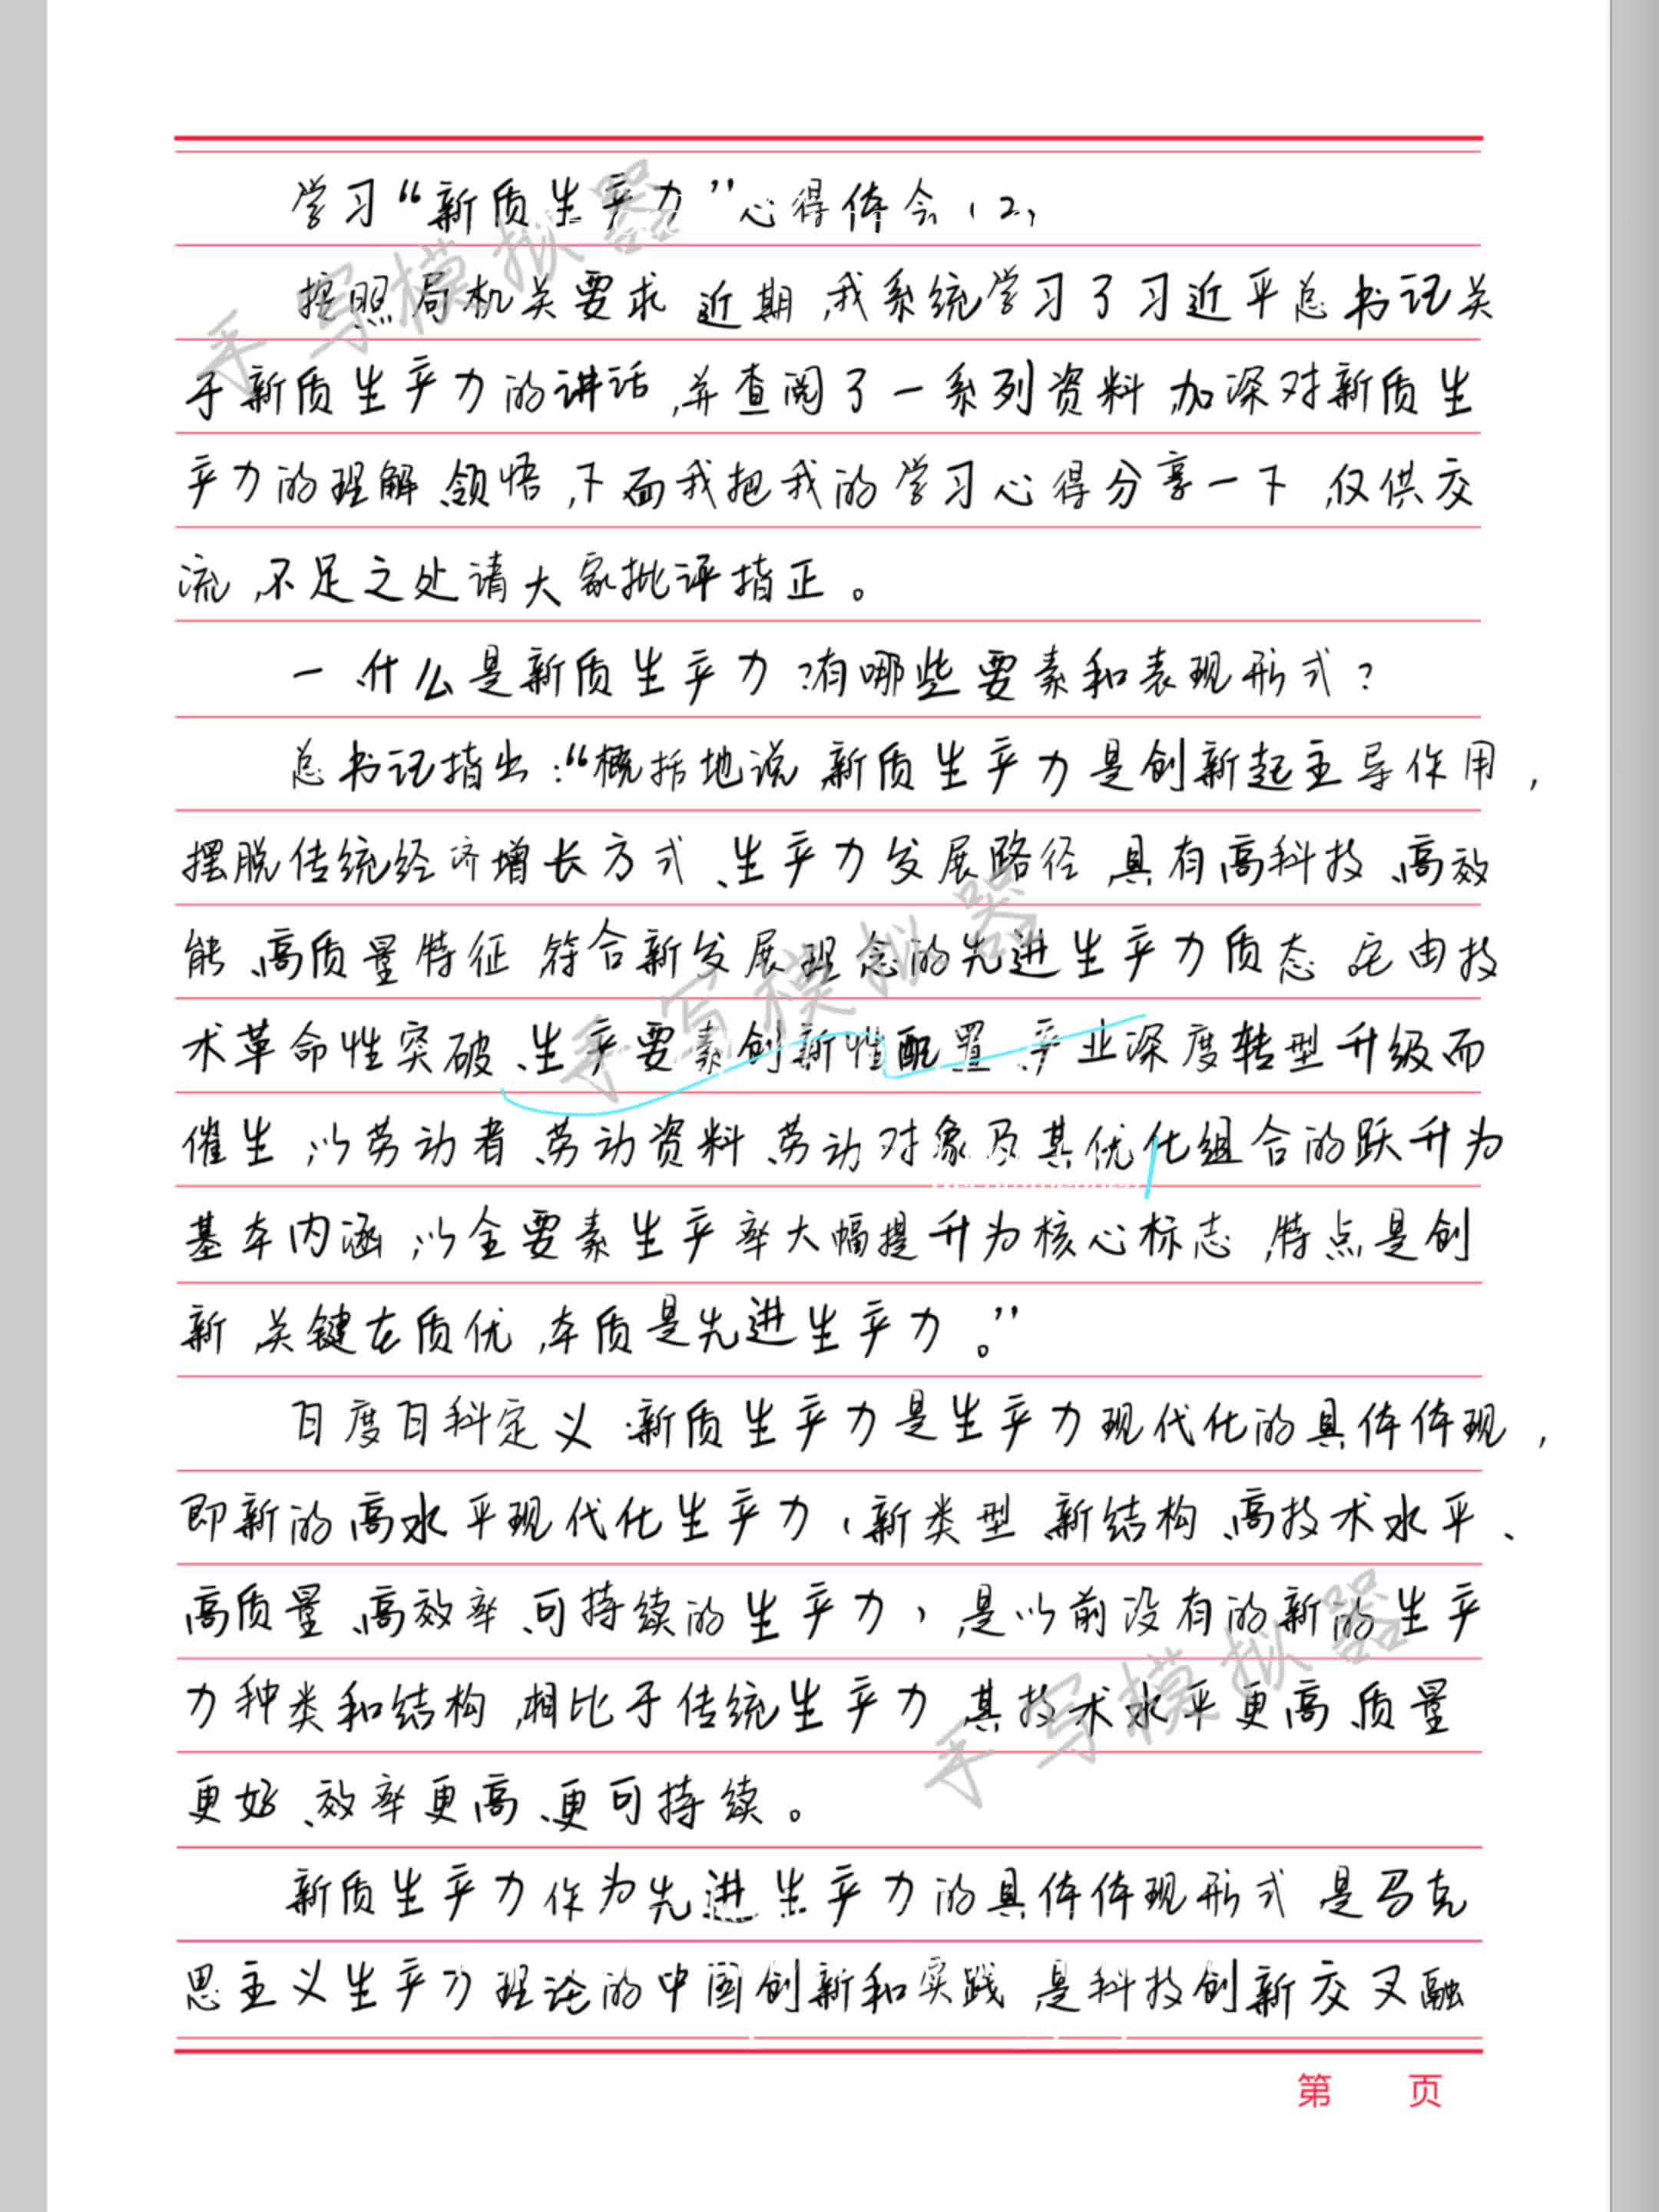 学习“新质生产力”心得体会(2)
按照局机关要求,近期,我系统学习了习近平总书记关
于新质生产力的讲话,并查阅了一系列资料,加深对新质生
产力的理解、领悟,下面我把我的学习心得分享一下,仅供交
流,不足之处请大家批评指正。
一、什么是新质生产力?有哪些要素和表现形式?
总书记指出:“概括地说,新质生产力是创新起主导作用,
摆脱传统经济增长方式、生产力发展路径,具有高科技、高效
能、高质量特征,符合新发展理念的先进生产力质态。它由技
术革命性突破、生产要素创新性配置、产业深度转型升级而
催生,以劳动者、劳动资料、劳动对象及其优化组合的跃升为
基本内涵,以全要素生产率大幅提升为核心标志,特点是创
新,关键在质优,本质是先进生产力。”
百度百科定义:新质生产力是生产力现代化的具体体现,
即新的高水平现代化生产力(新类型、新结构、高技术水平、
高质量、高效率、可持续的生产力),是以前没有的新的生产
力种类和结构,相比于传统生产力,其技术水平更高、质量
更好、效率更高、更可持续。
新质生产力作为先进生产力的具体体现形式,是马克
思主义生产力理论的中国创新和实践,是科技创新交叉融
第 页
手写模拟器
手写模拟器
手写模拟器